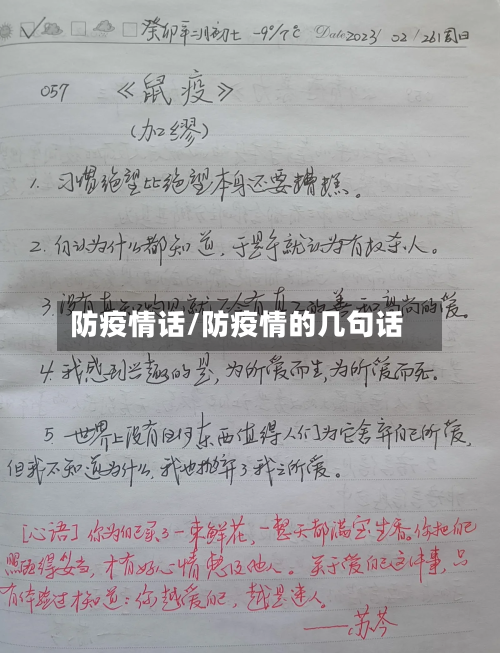 癸卯年二月初七 -9°/7℃ Date 2023/ 02 / 26 周日
057 《鼠疫》
(加缪)
1. 习惯绝望比绝望本身还要糟糕。
2. 自认为什么都知道,于是乎就认为有权杀人。
3. 没有真 的 就不会有真正的善和高尚的爱。
防疫情话/防疫情的几句话
4. 我感到兴趣的是,为所爱而生,为所爱而死。
5. 世界上没有任何东西值得人们为它舍弃自己所爱,
但我不知道为什么,我也抛弃了我之所爱。
[心语] 你为自己买了一束鲜花,一整天都满室生香。你把自己
照顾得妥当,才有好心情惠及他人。关于爱自己这件事,只
有体验过才知道:你越爱自己,越是迷人。
——苏芩